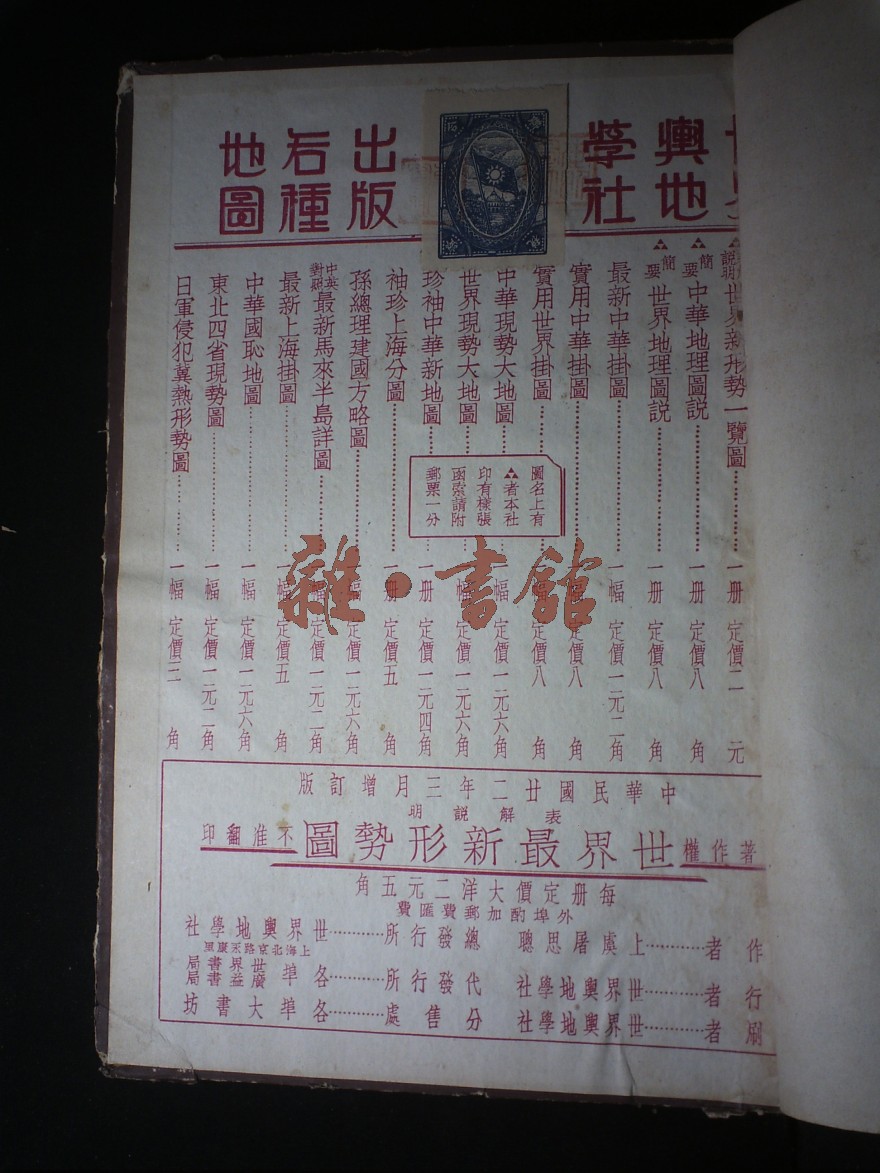 輿地學社
出版各種地圖
說明世界新形勢一覽圖 一册 定價二元
簡要中華地理圖說 一册 定價八角
簡要世界地理圖說 一册 定價八角
最新中華掛圖 一幅 定價一元二角
實用中華掛圖 定價八角
實用世界掛圖 定價八角
中華現勢大地圖 一幅 定價一元六角
世界現勢大地圖 一幅 定價一元六角
珍袖中華新地圖 一册 定價一元四角
袖珍上海分圖 一册 定價五角
孫總理建國方略圖 一幅 定價一元六角
中英對照最新馬來半島詳圖 一幅 定價一元二角
最新上海掛圖 一幅 定價五角
中華國恥地圖 一幅 定價一元六角
東北四省現勢圖 一幅 定價一元二角
日軍侵犯冀熱形勢圖 一幅 定價三角
圖名上有
者本社
印有樣張
函索請附
郵票一分
雜·書館
中華民國廿二年三月增訂版
表解說明
著作權 世界最新形勢圖 不准翻印
每册定價大洋二元五角
外埠酌加郵費匯費
作者 上虞屠思聰
行者 世界輿地學社
刷者 世界輿地學社
總發行所 世界輿地學社
上海北京路禾康里
代發行所 各埠世界書局廣益書局
分售處 各埠大書坊